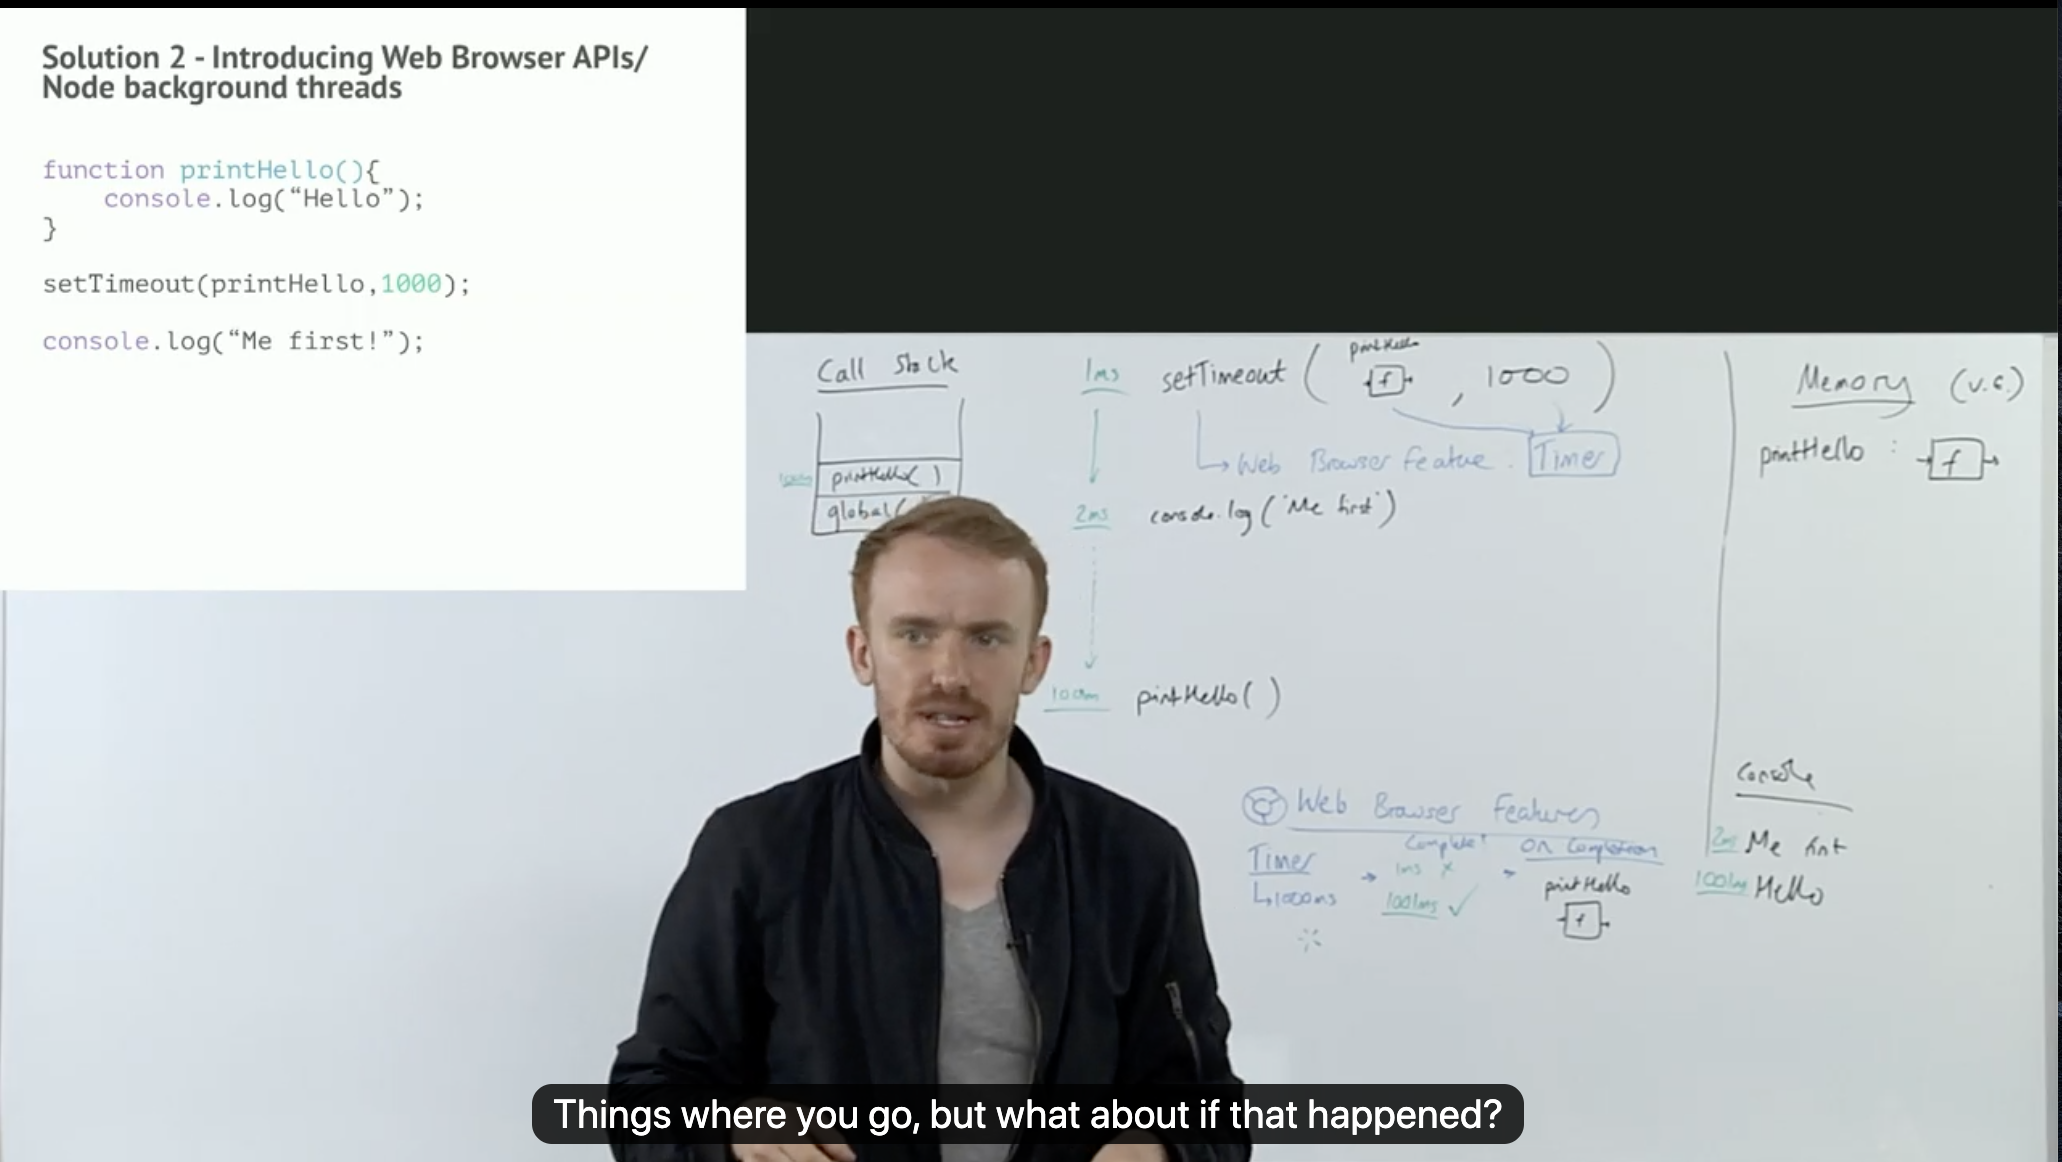 Solution 2 - Introducing Web Browser APIs/
Node background threads
function printHello(){
console.log(“Hello”);
}
setTimeout(printHello,1000);
console.log(“Me first!”);
Call Stack
printHello( )
global(
1ms
setTimeout ( printHello f , 1000 )
Web Browser feature : Timer
2ms
console.log('Me first')
printHello( )
Memory (v.e.)
printHello : f
Web Browser Features
Timer
1000ms
Complete?
1ms x
1001ms ✓
On Completion
printHello
f
Console
2ms Me first
1001ms Hello
Things where you go, but what about if that happened?